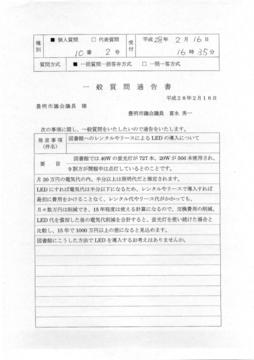 種別 ■ 個人質問 □ 代表質問 受付 平成28年2月16日
10番 2号 16時35分
質問方式 ■ 一括質問一括答弁方式 □ 一問一答方式
一般質問通告書
平成28年2月16日
豊明市議会議長 様
豊明市議会議員 富永 秀一
次の事項に関し、一般質問をいたしたいので通告をいたします。
発言事項(件名) 図書館へのレンタルやリースによるLEDの導入について
要旨 図書館では40Wの蛍光灯が727本、20Wが566本使用され、
9割方が開館中は点灯しているとのことです。
月30万円の電気代の内、半分以上は照明代だと推定されます。
LEDにすれば電気代は半分以下になるため、レンタルやリースで導入すれば
最初に費用をかけることなく、レンタル代やリース代がかかっても、
月々数万円は削減でき、15年程度は使える計算になるので、交換費用の削減、
LED代を償却した後の電気代削減を合計すると、蛍光灯を使い続けた場合と
比較し、15年で1000万円以上の差になると見込めます。
図書館にこうした方法でLEDを導入するお考えはありませんか。